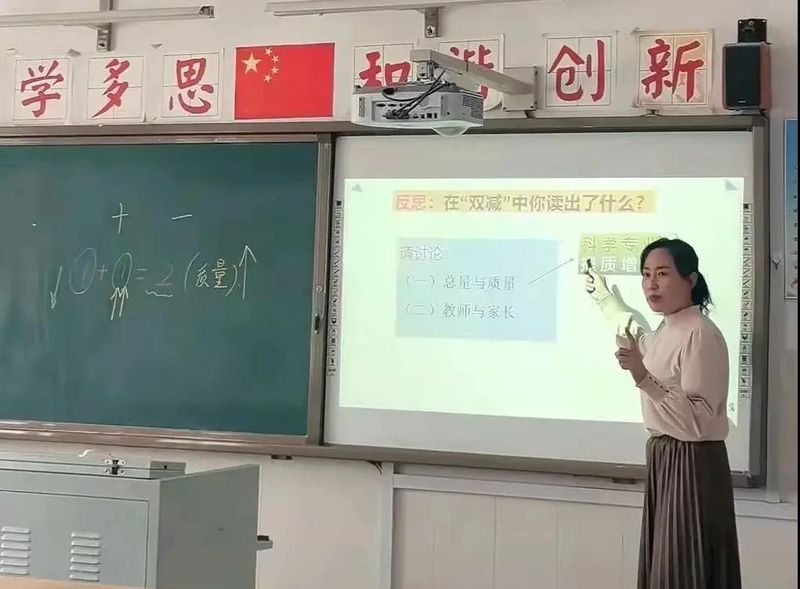 学多思 和谐创新
反思：在“双减”中你读出了什么？
请讨论：
（一）总量与质量
（二）教师与家长
科学专业
提质增
+ −
↓ ①+①=2（质量）↑
↑↑